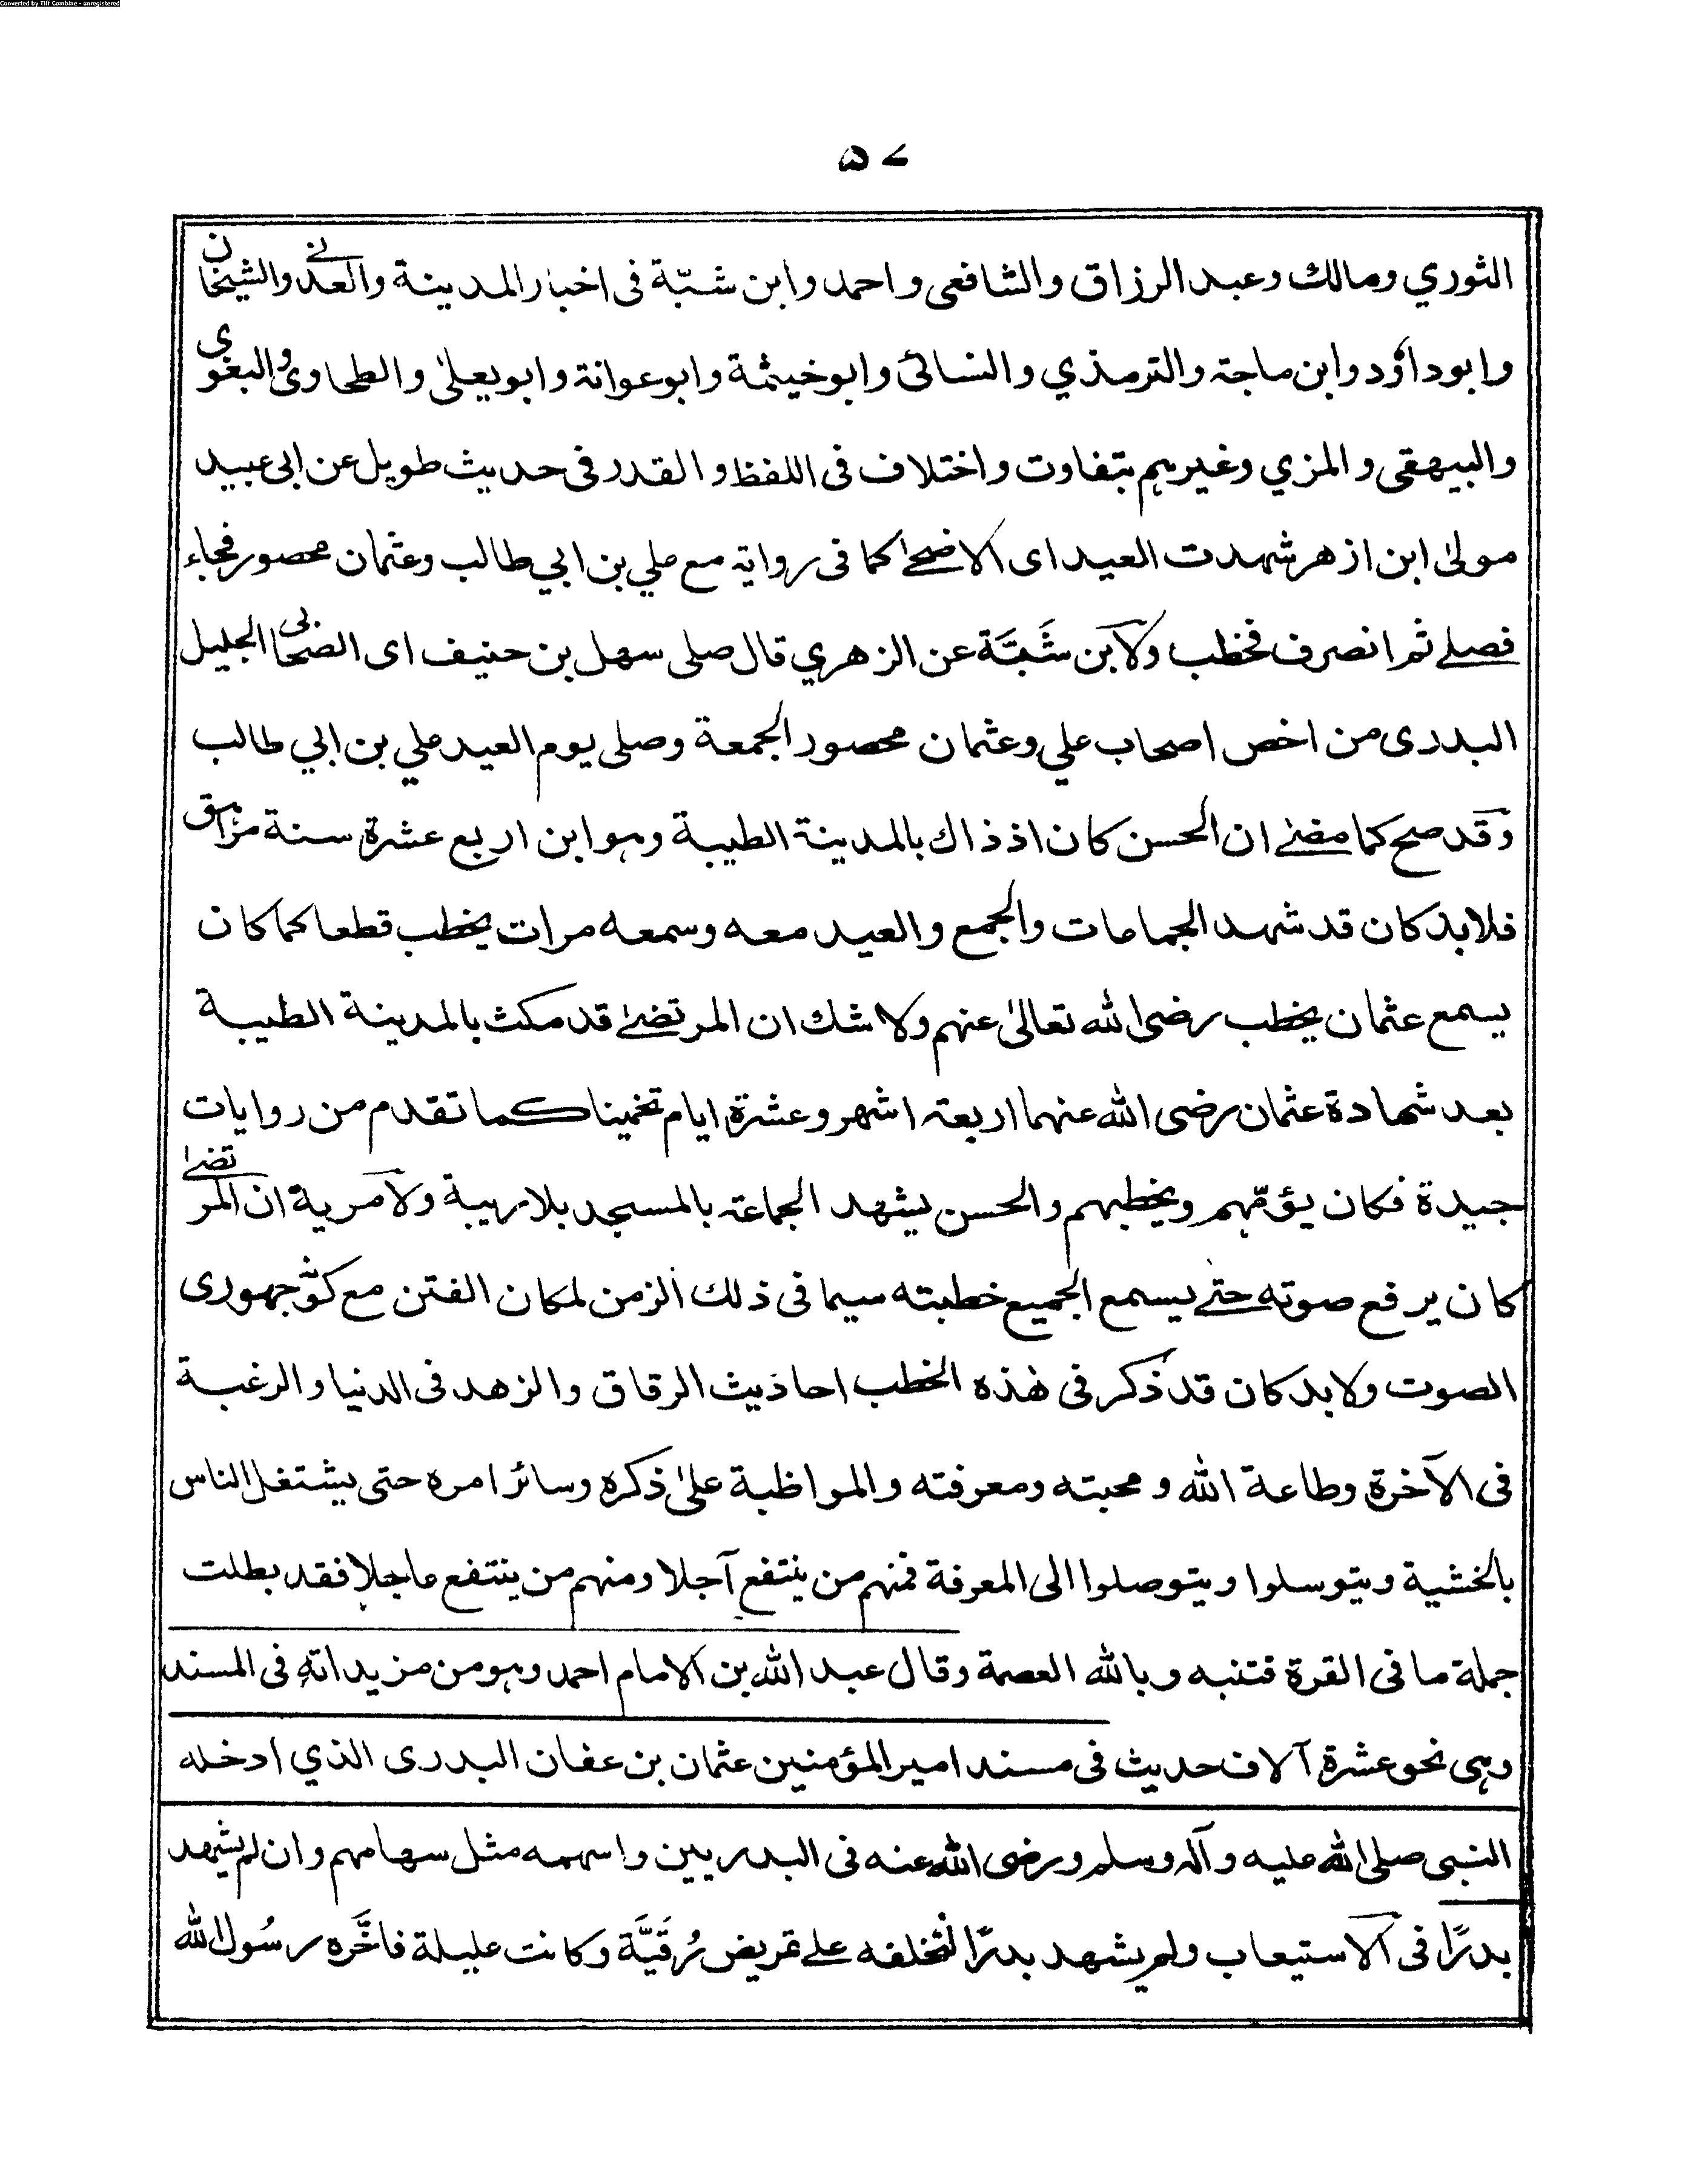 Converted by Tiff Combine - unregistered
۵۷
الثوري ومالك وعبد الرزاق والشافعی واحمد وابن شبّة فی اخبار المدينة والعدنی والشيخان
وابوداؤد وابن ماجة والترمذي والنسائی وابوخيثمة وابوعوانة وابويعلیٰ والطحاوی والبغوی
والبيهقی والمزي وغيرہم بتفاوت واختلاف فی اللفظ والقدر فی حديث طويل عن ابی عبيد
مولیٰ ابن ازهر شهدت العيد ای الاضحےٰ كما فی رواية مع علي بن ابي طالب وعثمان محصور فجاء
فصلے ثم انصرف فخطب ولابن شَبَّة عن الزهري قال صلی سهل بن حنيف ای الصحابی الجليل
البدری من اخص اصحاب علي وعثمان محصور الجمعة وصلی يوم العيد علي بن ابي طالب
وقد صح كما مضےٰ ان الحسن كان اذ ذاك بالمدينة الطيبة وہو ابن اربع عشرة سنة مراہق
فلابد كان قد شهد الجماعات والجمع والعيد معه وسمعه مرات يخطب قطعا كما كان
يسمع عثمان يخطب رضی الله تعالیٰ عنهم ولا شك ان المرتضےٰ قد مكث بالمدينة الطيبة
بعد شهادة عثمان رضی الله عنهما اربعة اشهر وعشرة ايام تخمينا كما تقدم من روايات
جيدة فكان يؤمّهم ويخطبهم والحسن يشهد الجماعة بالمسجد بلا ريبة ولا مرية ان المرتضےٰ
كان يرفع صوته حتے يسمع الجميع خطبته سيما فی ذلك الزمن لمكان الفتن مع كونه جهوری
الصوت ولابد كان قد ذكر فی هٰذه الخطب احاديث الرقاق والزهد فی الدنيا والرغبة
فی الآخرة وطاعة الله ومحبته ومعرفته والمواظبة علیٰ ذكره وسائر امره حتی يشتغل الناس
بالخشية ويتوسلوا ويتوصلوا الی المعرفة فمنهم من ينتفع آجلا ومنهم من ينتفع عاجلا فقد بطلت
جملة ما فی القرة فتنبه وبالله العصمة وقال عبد الله بن الامام احمد وہو من مزيداته فی المسند
وہی نحو عشرة آلاف حديث فی مسند امير المؤمنين عثمان بن عفان البدری الذي ادخله
النبی صلی الله عليه وآله وسلم ورضی الله عنه فی البدريين واسهمه مثل سهامهم وان لم يشهد
بدرًا فی الاستيعاب ولم يشهد بدرًا لتخلفه علے تمريض رُقَيَّة وكانت عليلة فاخَّره رسُول الله